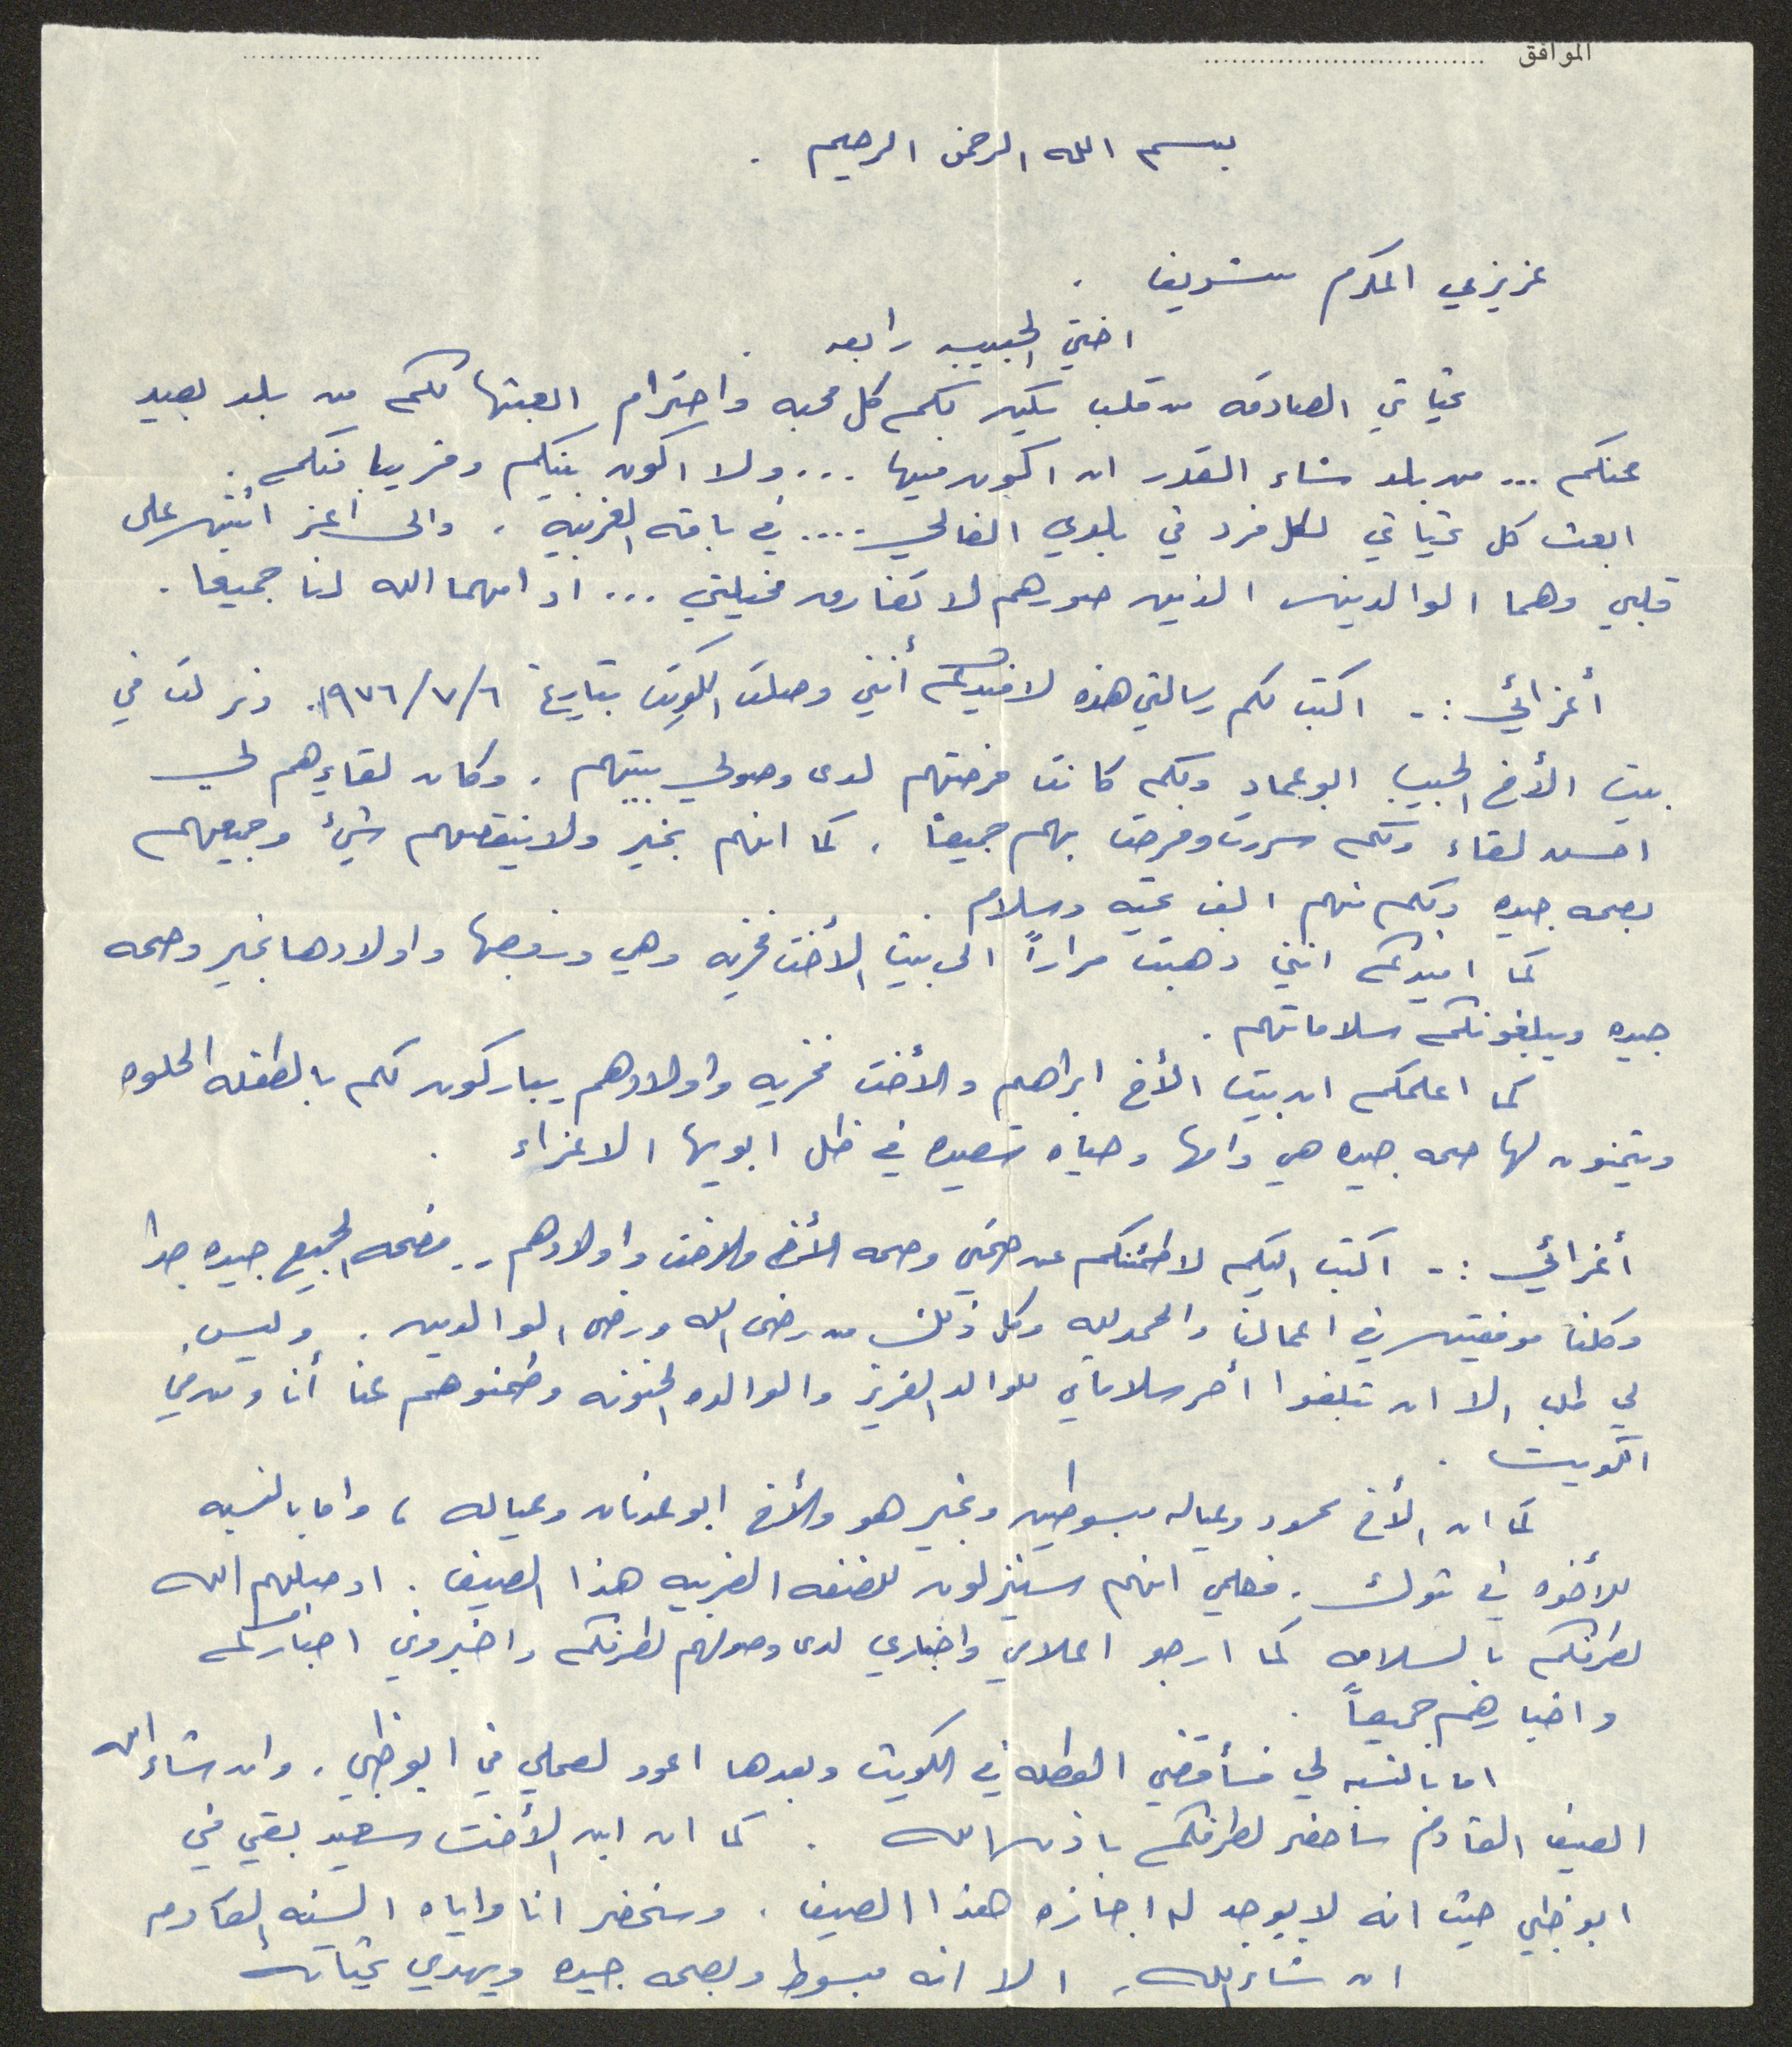 الموافق ................................ ................................
بسم الله الرحمن الرحيم .
عزيزي المكرم شريف .
اختي الحبيبه رابعه .
تحياتي الصادقه من قلب يكن لكم كل محبه واحترام ابعثها لكم من بلد بعيد
عنكم ... من بلد شاء القدر ان اكون فيها ... ولا اكون بينكم وقريبا منكم .
ابعث كل تحياتي لكل فرد في بلدي الغالي .... في باقه الغربية . والى اعز اثنين على
قلبي وهما الوالدين الذين صورهم لا تفارق مخيلتي ... ادامهما الله لنا جميعا .
أعزائي :- اكتب لكم رسالتي هذه لافيدكم أنني وصلت الكويت بتاريخ ١٩٧٦/٧/٦ . ونزلت في
بيت الأخ الحبيب ابو عماد وكم كانت فرحتهم لدى وصولي بيتهم . وكان لقاءهم لي
احسن لقاء وكم سررت وفرحت بهم جميعاً . كما انهم بخير ولا ينقصهم شيئ وجميعهم
بصحه جيده ولكم منهم الف تحيه وسلام .
كما افيدكم انني ذهبت مراراً الى بيت الأخت فخريه وهي وزوجها واولادها بخير وصحه
جيده ويبلغونكم سلاماتهم .
كما اعلمكم ان بيت الأخ ابراهيم والأخت فخريه واولادهم يباركون لكم بالطفله الحلوه
ويتمنون لها صحه جيده هي وامها وحياه سعيده في ظل ابويها الاعزاء .
أعزائي :- اكتب اليكم لاطمئنكم عن صحتي وصحه الأخ والاخت واولادهم .. فصحه الجميع جيده جدا
وكلنا موفقين في اعمالنا والحمد لله وكل ذلك من رضى الله ورضى الوالدين . وليس
لي طلب الا ان تبلغوا أحر سلاماتي للوالد العزيز والوالده الحنونه وطمنوهم عنا أنا ومن في
الكويت .
كما ان الأخ محمود وعياله مبسوطين وبخير هو والأخ ابو عدنان وعياله ، واما بالنسبه
للأخوه في تبوك . فعلمي انهم سينزلون للضفه الغربيه هذا الصيف . اوصلهم الله
لطرفكم بالسلامه كما ارجو اعلامي واخباري لدى وصولهم لطرفكم واخبروني اخباركم
واخبارهم جميعاً .
اما بالنسبه لي فسأقضي العطله في الكويت وبعدها اعود لعملي في ابو ظبي . وان شاء الله
الصيف القادم سأحضر لطرفكم باذن الله . كما ان ابن الأخت سعيد بقي في
ابو ظبي حيث انه لا يوجد له اجازه هذا الصيف . وسنحضر انا واياه السنه القادمه
ان شاء الله . الا انه مبسوط وبصحه جيده ويهدي تحياته